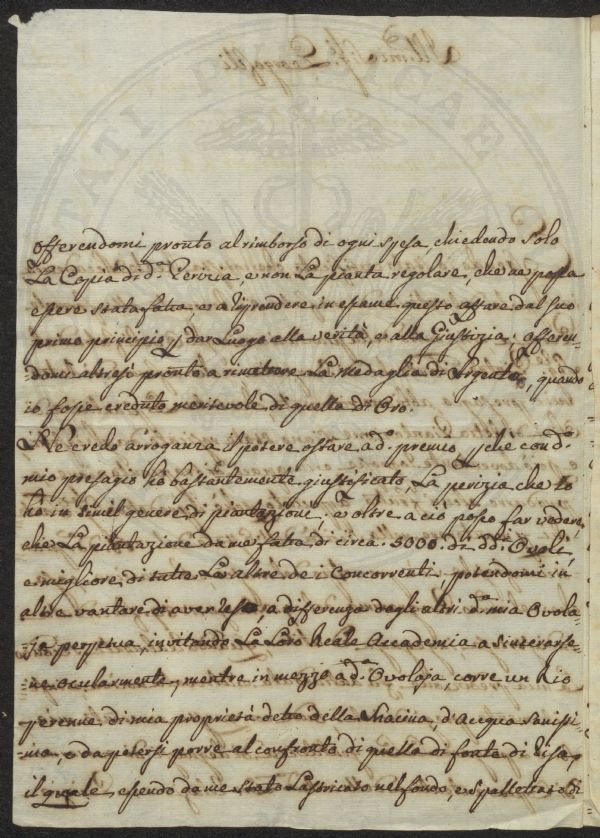 offerendomi pronto al rimborso di ogni spesa, chiedendo solo
La Copia di d.ª Perizia, e non La pianta regolare, che ne possa
essere stata fatta, e a riprendere in esame questo affare dal suo
primo principio p dar Luogo alla verità, e alla Giustizia; offeren-
-domi altresì pronto a rimettere La Medaglia di Argento, quando
io fosse creduto meritevole di quella di Oro.
Ne credo arroganza il potere ostare a d.º premio, p che con d.º
mio presagio hò bastantemente giustificato, La perizia che io
hò in simil genere di piantazione, e oltre a ciò posso far vedere,
che La piantazione da me fatta di circa. 5000. di dd.i Ovoli,
e migliore di tutte Le altre de i Concorrenti, potendomi in
altre vantare di aver resa, a differenza dagli altri d.ª mia Ovola-
-ja perpetua, invitando La Loro Reale Accademia a sincerarse-
-ne ocularmente, mentre in mezzo a d.ª Ovolaja, corre un Rio
perenne di mia proprietà detto della, d'Acqua sanissi-
ma, e da potersi porre al confronto di quella di fonte di Pisa,
il quale, essendo da me stato Lastricato nel fondo, e spallettato di
STATI PUBLICAE